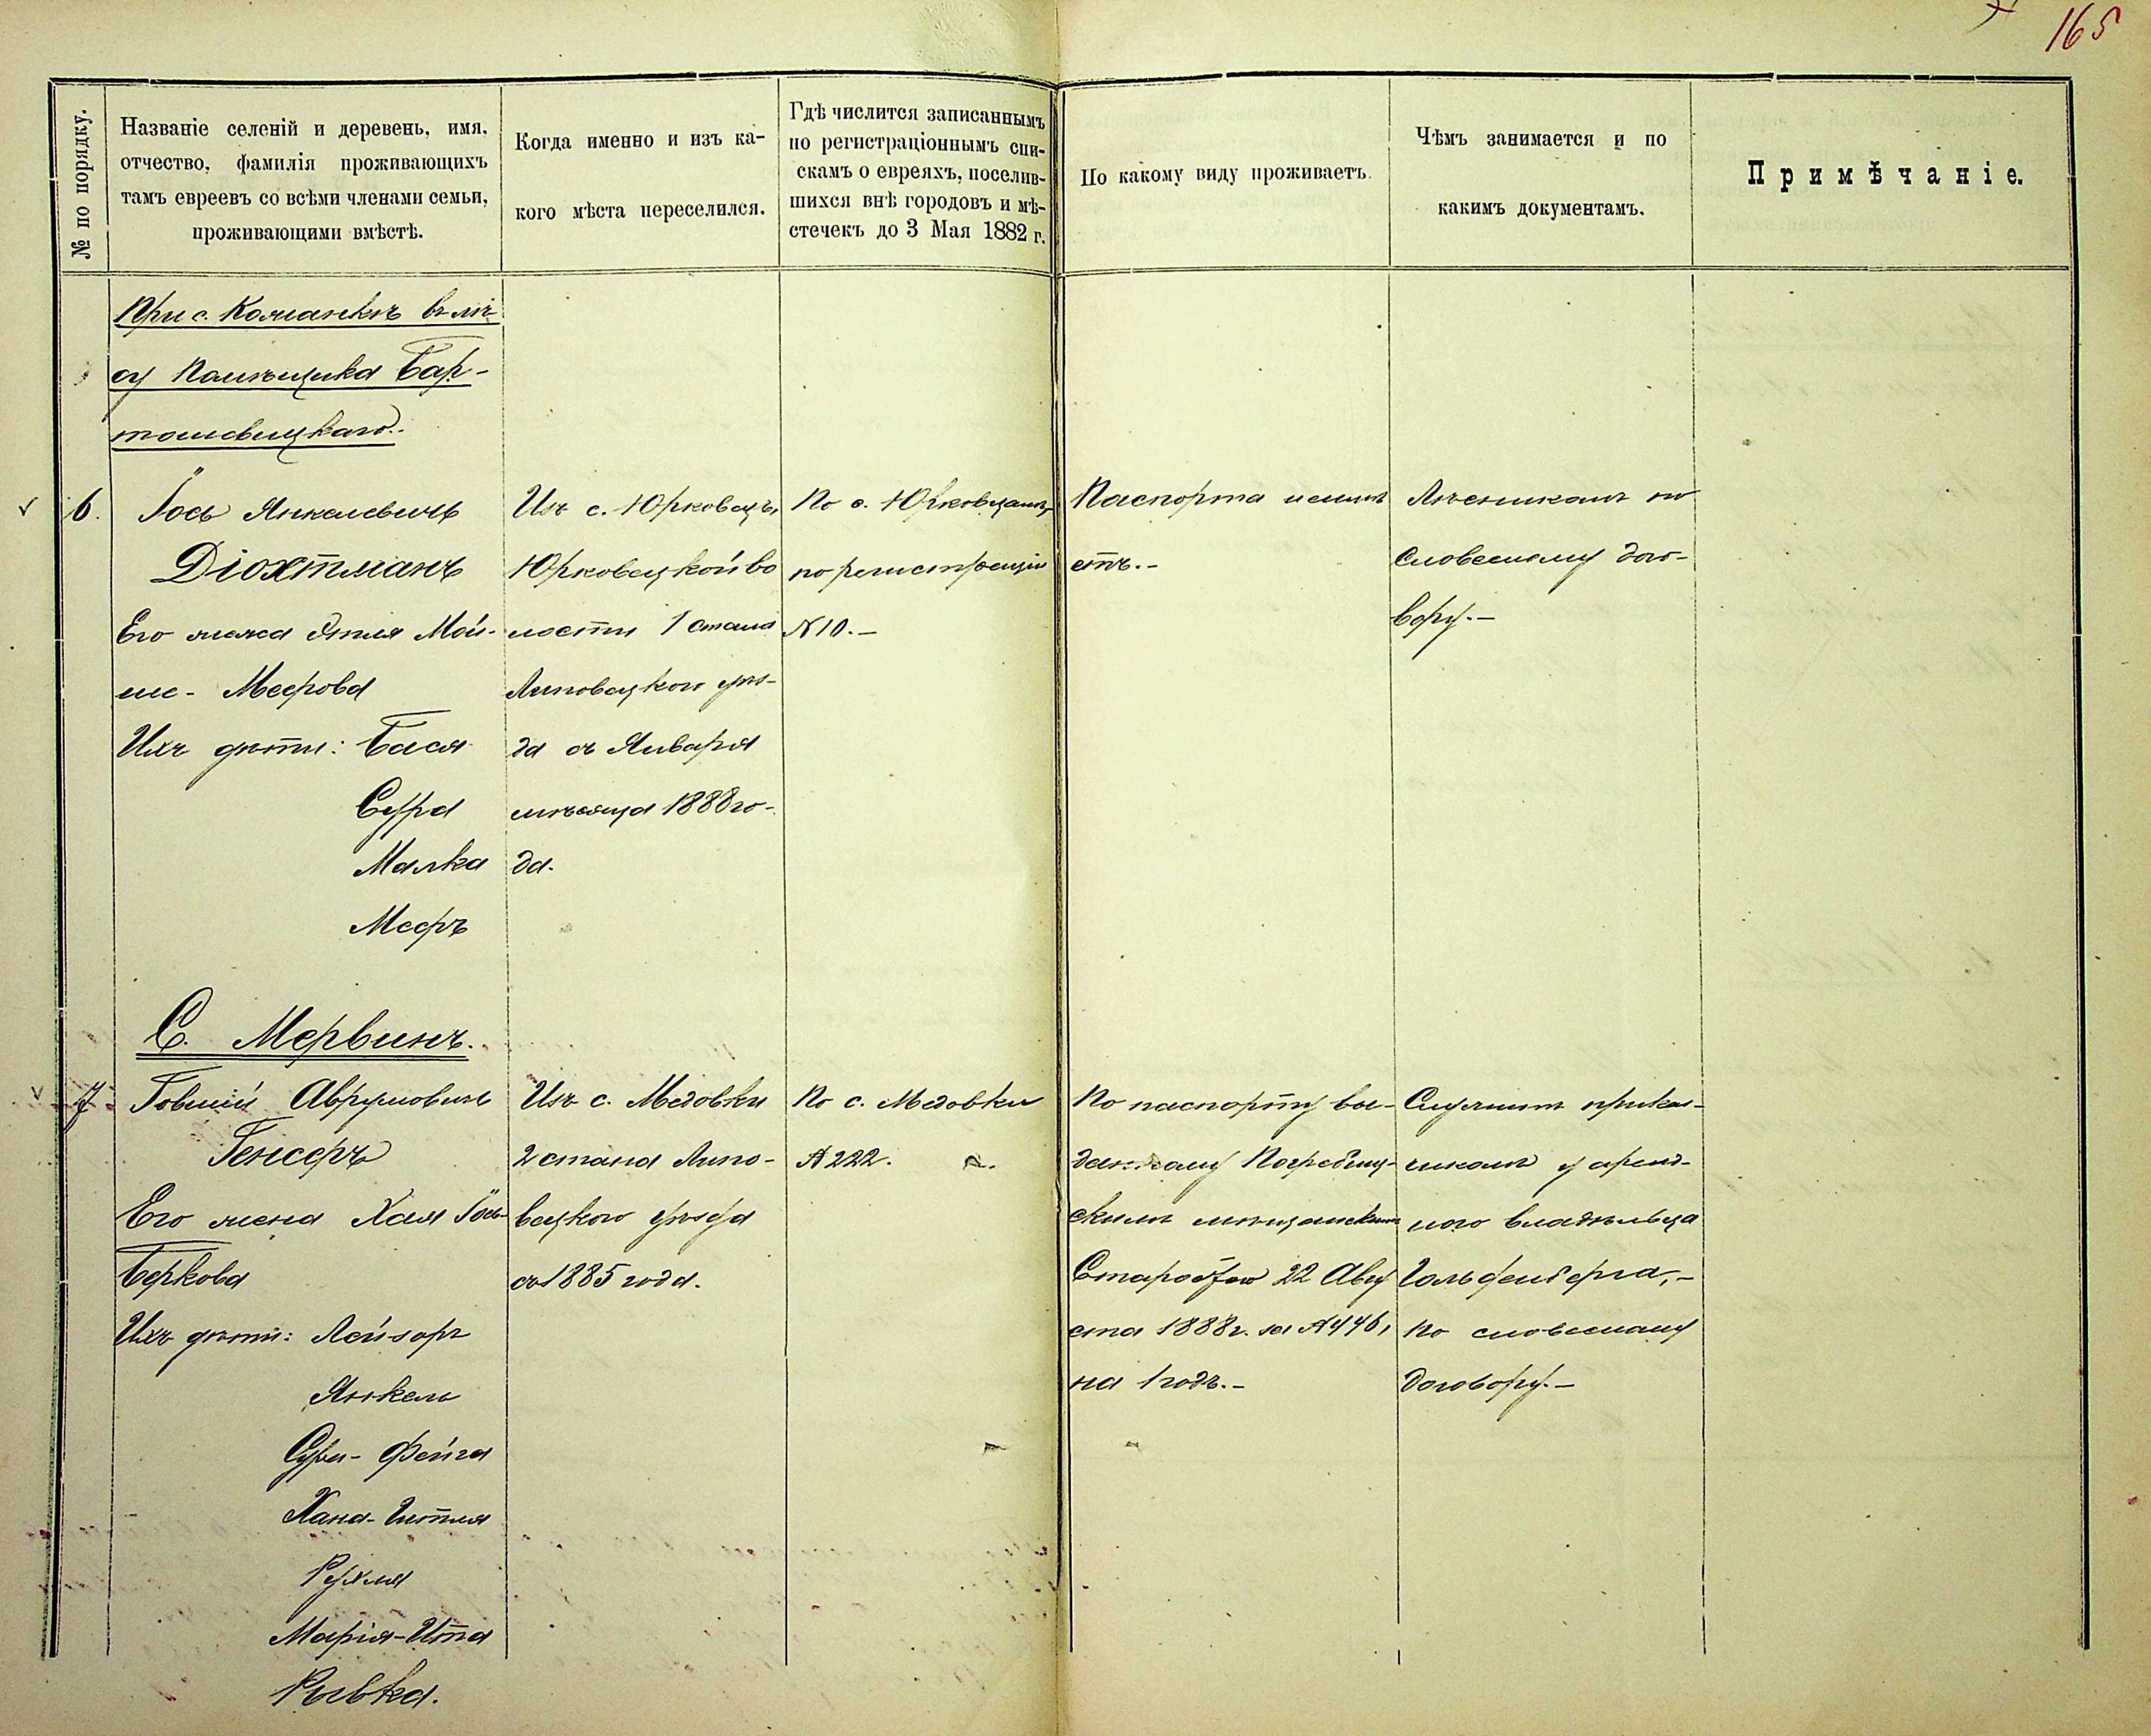 165
№ по порядку.
Названіе селеній и деревень, имя,
отчество, фамилія проживающихъ
тамъ евреевъ со всѣми членами семьи,
проживающими вмѣстѣ.
Когда именно и изъ ка-
кого мѣста переселился.
Гдѣ числится записаннымъ
по регистраціоннымъ спи-
скамъ о евреяхъ, поселив-
шихся внѣ городовъ и мѣ-
стечекъ до 3 Мая 1882 г.
По какому виду проживаетъ.
Чѣмъ занимается и по
какимъ документамъ.
Примѣчаніе.
При с. въ лѣ-
су Помѣщика Бар-
тошевицкаго.
6.
Іось Янкелевичъ
Діохтманъ
Его жена Этля Мой-
ше- Меерова
Ихъ дѣти: Бася
Сура
Малка
Меръ
Изъ с. Юрковецъ,
Юрковецкой во
лости 1 стана
Липовецкого уѣз-
да съ Января
мѣсяца 1888 го-
да.
По с. Юрковцамъ,
по регистраціи
№ 10.-
Паспорта неимѣ
етъ.-
Лѣсникомъ по
словесному дого-
вору.-
С. Мервинъ.
7
Іовшій Аврумовичъ
Генсеръ
Его жена Хая Гось-
Беркова
Ихъ дѣти: Лейзоръ
Янкель
Сура- Фейга
Хана- Гитля
Рухля
Марія-Итта
Рывка.
Изъ с. Медовки
2 стана Липо-
вецкого уѣзда
съ 1885 года.
По с. Медовки
№ 222.
По паспорту вы-
данному Погребищ-
скимъ мѣщанскимъ
Старостою 22 Авгу
ста 1888 г. за № 446,
на 1 годъ.-
Служитъ прикащ-
чикомъ у аренд-
ного владѣльца
Гольденберга,-
по словесному
договору.-